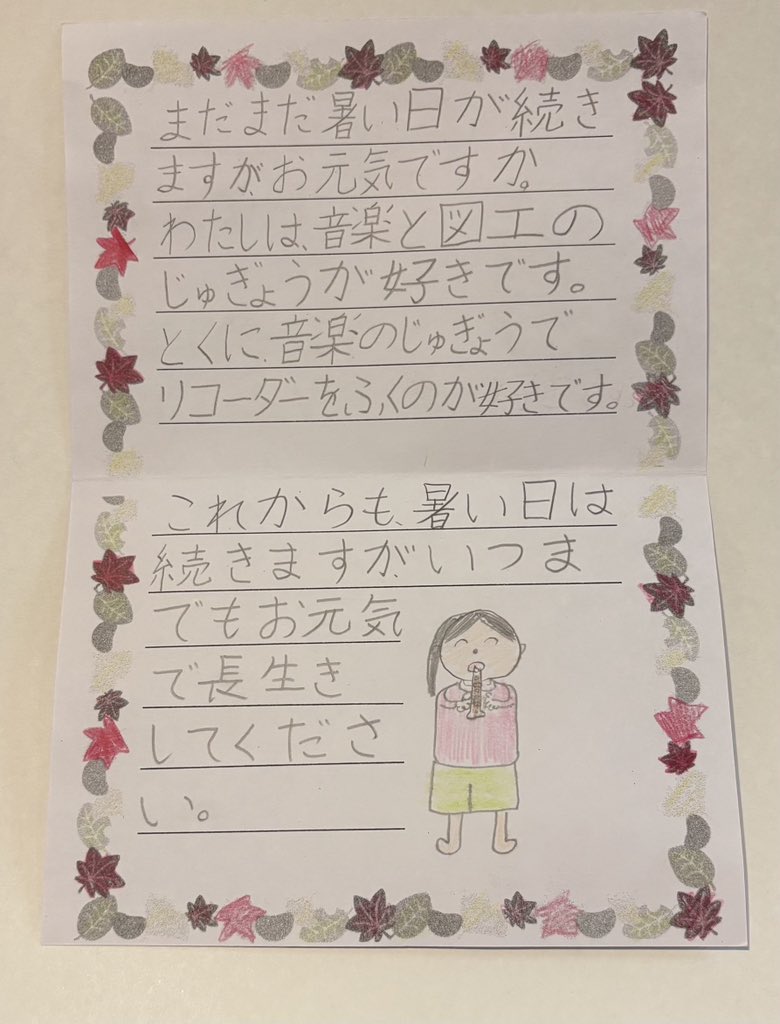 まだまだ暑い日が続き
ますが、お元気ですか。
わたしは、音楽と図工の
じゅぎょうが好きです。
とくに、音楽のじゅぎょうで
リコーダーをふくのが好きです。
これからも、暑い日は
続きますが、いつま
でもお元気
で長生き
してくださ
い。